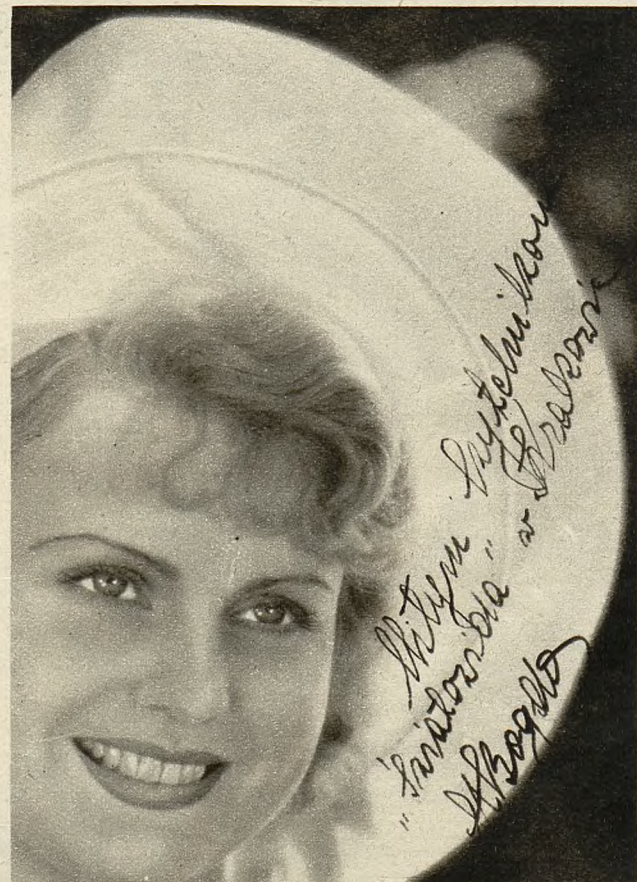 Miłym Czytelnikom
"Światowida" w Krakowie
MBogda